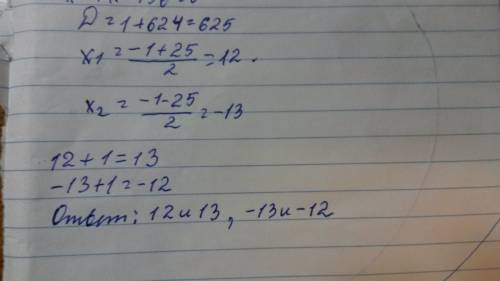 D = 1 + 624 = 625
x₁ = (-1 + 25)/2 = 12.
x₂ = (-1 - 25)/2 = -13
12 + 1 = 13
-13 + 1 = -12
Ответ: 12 и 13, -13 и -12